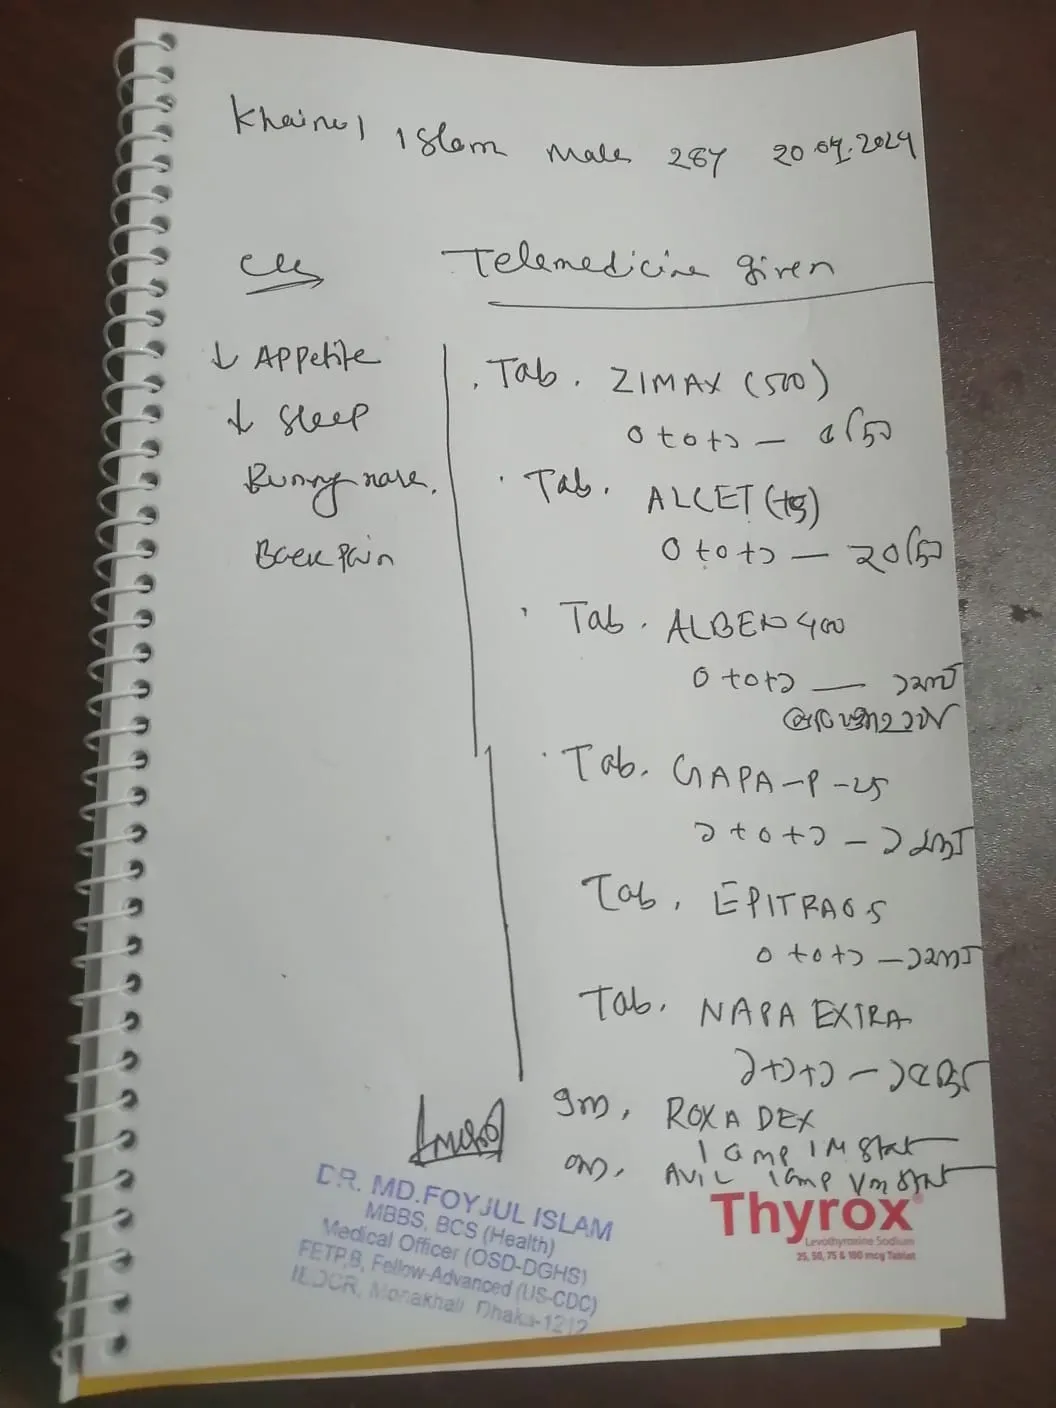 Khairul Islam Male 28Y 20.04.2024
Telemedicine given
↓ Appetite
↓ Sleep
Runny nose.
Back Pain
Tab. ZIMAX (500)
0+0+১ —
Tab. ALCET
0+0+১ — ২০ দিন
Tab. ALBEN 400
0+0+১ —
Tab. GAPA-P-25
১+0+১ —
Tab. EPITRA 0.5
0+0+১ —
Tab. NAPA EXTRA
১+১+১ —
ROXADEX
1 amp IM Stat
AVIL 1 amp IM Stat
DR. MD. FOYJUL ISLAM
MBBS, BCS (Health)
Medical Officer (OSD-DGHS)
FETP,B, Fellow-Advanced (US-CDC)
IEDCR, Mohakhali, Dhaka-1212
Thyrox®
Levothyroxine Sodium
25, 50, 75 & 100 mcg Tablet